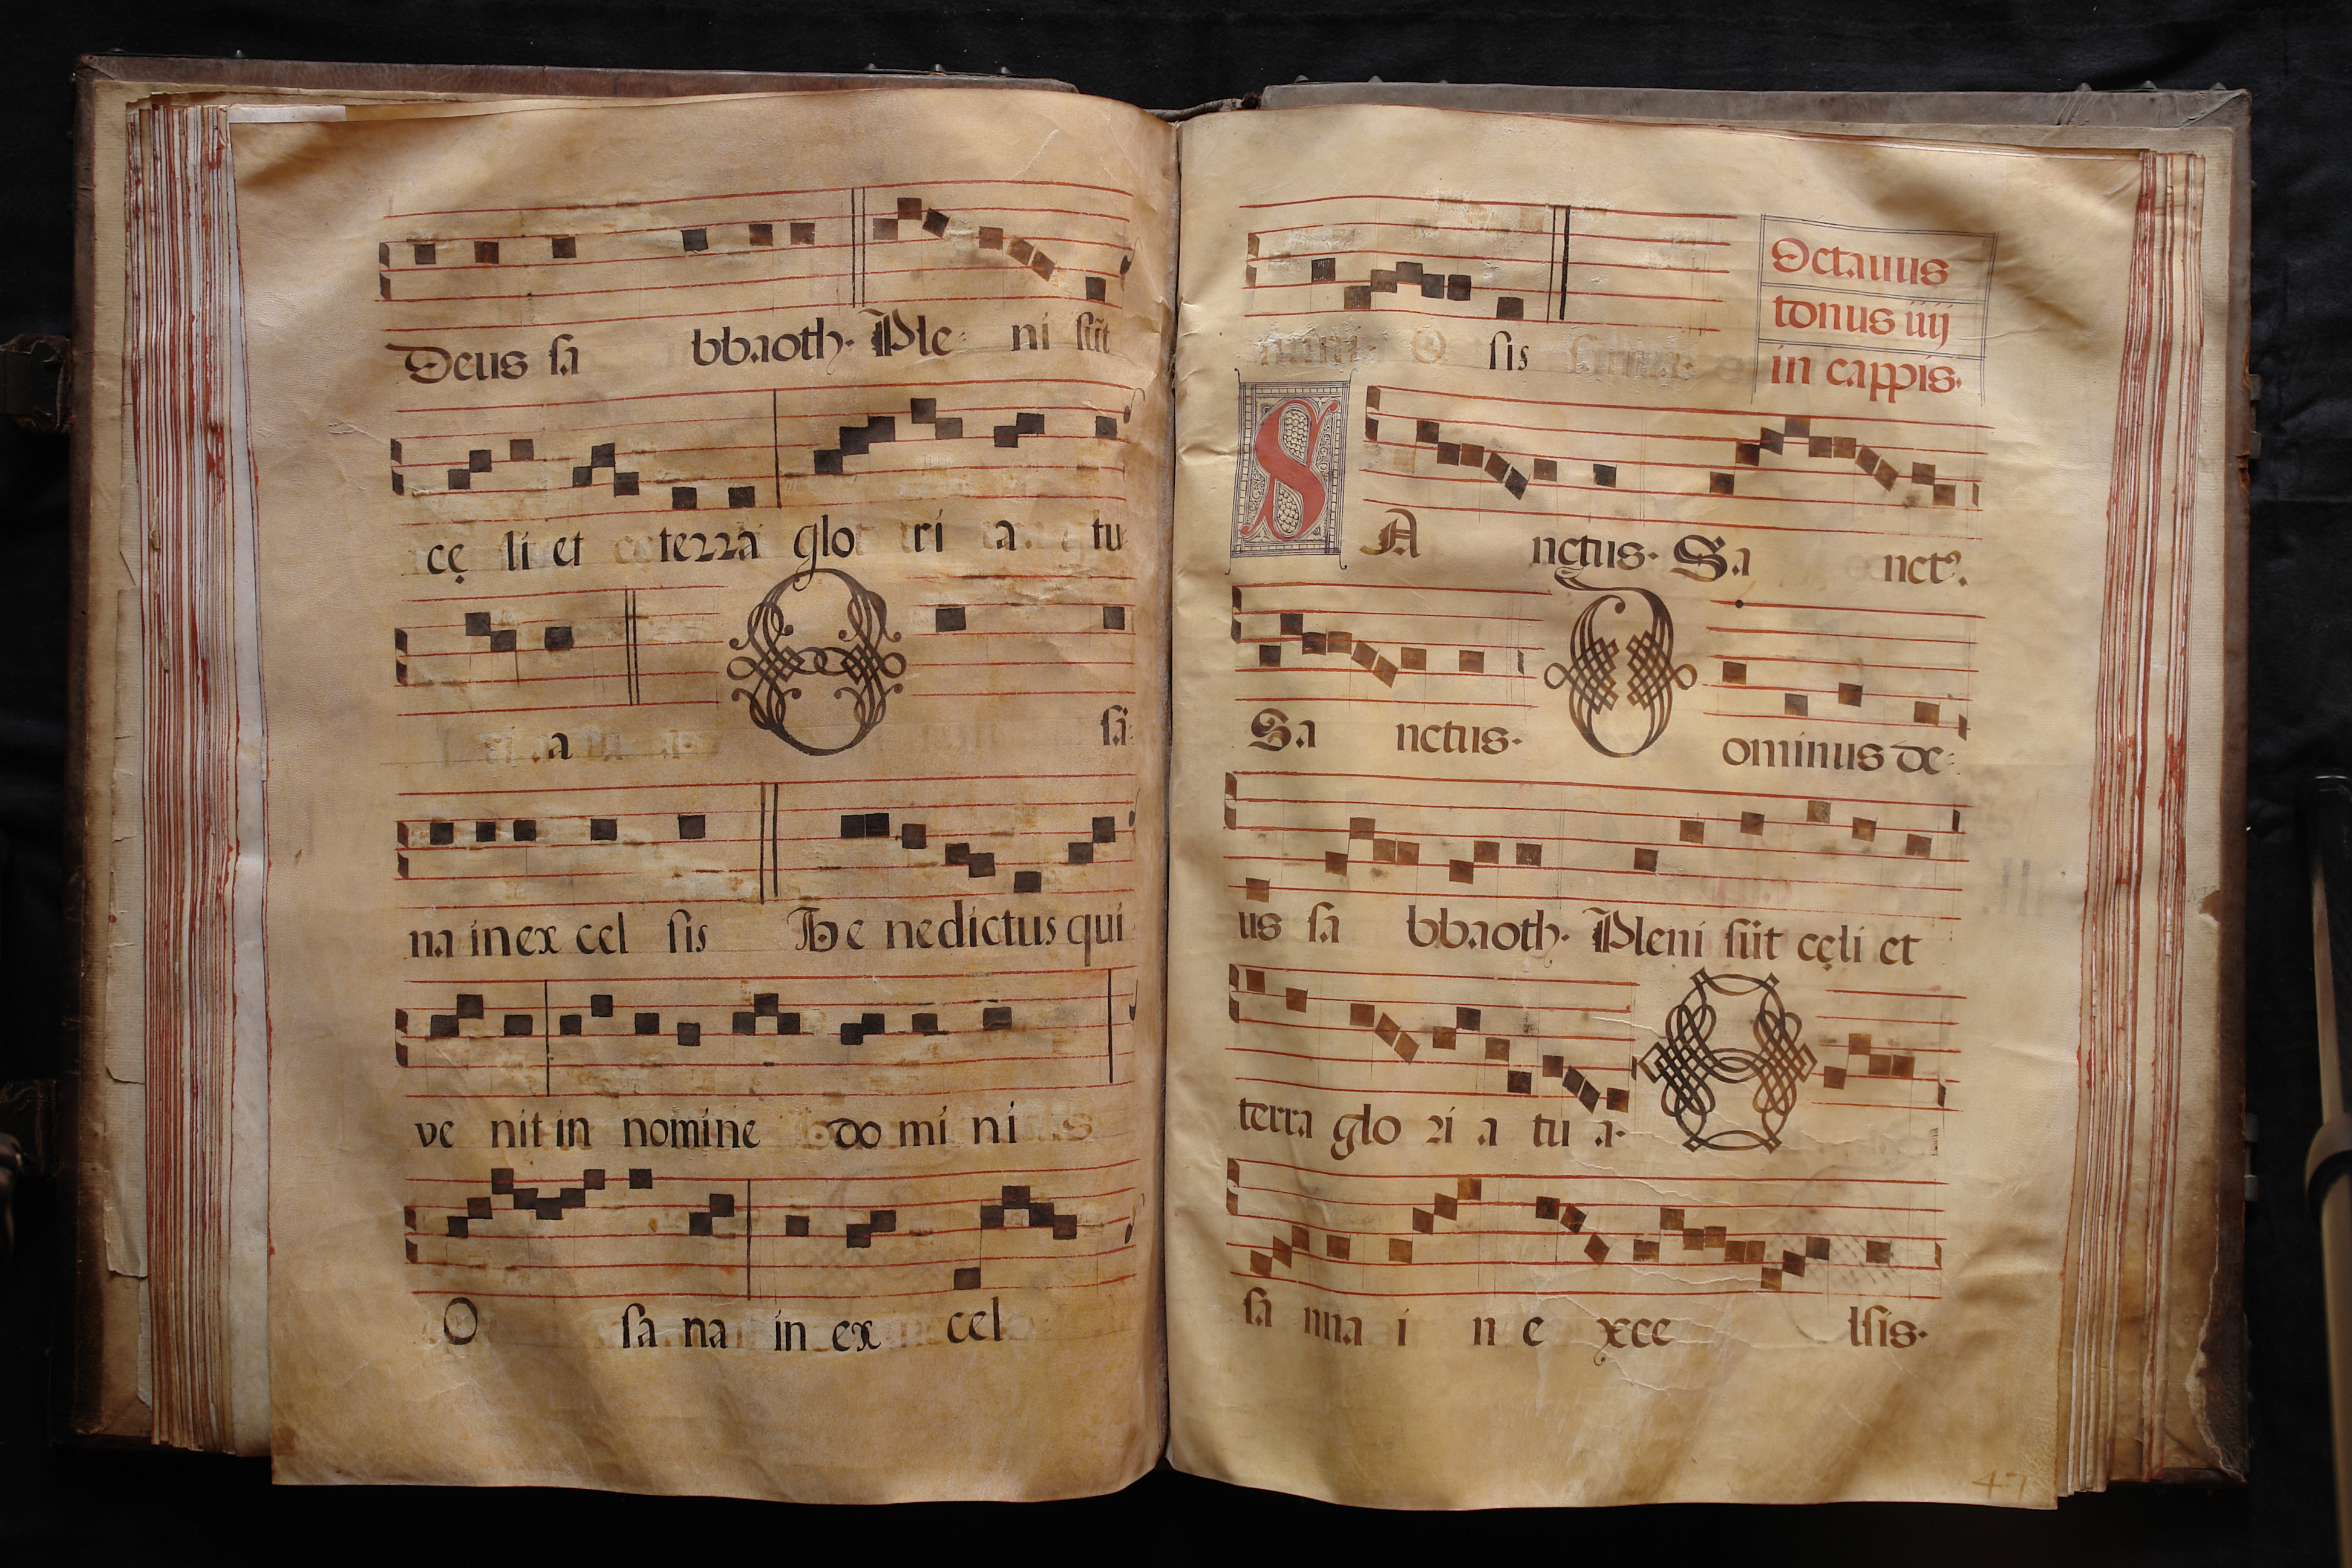 Deus sa bbaoth. Ple ni sũt
cę li et terra glo ri a tu
a O sa
na in ex cel sis Be nedictus qui
ve nit in nomine do mi ni
O sa na in ex cel
sis
Octauus
tonus iiij
in cappis.
SA nctus. Sa nctꝰ.
Sa nctus. Dominus de
us sa bbaoth. Pleni sũt cęli et
terra glo ri a tu a. O
sa nna i n e xce lsis.
47